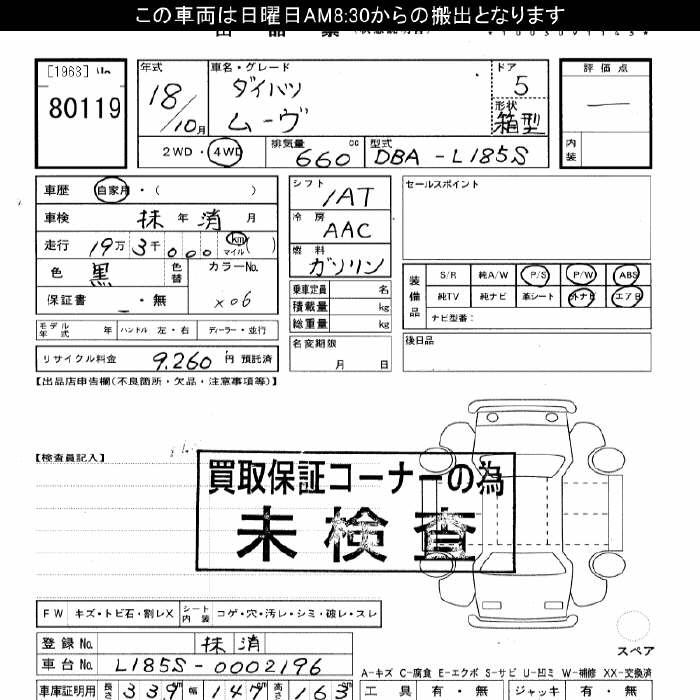 この車両は日曜日AM8:30からの搬出となります
[1963]
80119
年式 車名・グレード ドア 評価点
18/10月 ダイハツ ムーヴ 5
形状 箱型
内装
2WD・4WD 排気量 660 cc 型式 DBA-L185S
車歴 自家用・( )
車検 抹 年 消 月
走行 19万3千000 km マイル( )
色 黒 色替 カラーNo. X06
保証書 ・無
モデル年式 年 ハンドル 左・右 ディーラー・並行
リサイクル料金 9.260円 預託済
シフト IAT
冷房 AAC
燃料 ガソリン
乗車定員 名
積載量 kg
総重量 kg
名変期限 月 日
セールスポイント
装備品 S/R 純A/W P/S P/W ABS
純TV 純ナビ 革シート 外ナビ エアB
ナビ型番:
後日品
【出品店申告欄(不良箇所・欠品・注意事項等)】
【検査員記入】
買取保証コーナーの為
未検査
FW キズ・トビ石・割レX シート内装 コゲ・穴・汚レ・シミ・破レ・スレ
スペア
登録No. 抹消
車台No. L185S-0002196
A-キズ C-腐食 E-エクボ S-サビ U-凹ミ W-補修 XX-交換済
車庫証明用 長さ 339 cm 幅 147 cm 高さ 163 cm
工具 有・無 ジャッキ 有・無